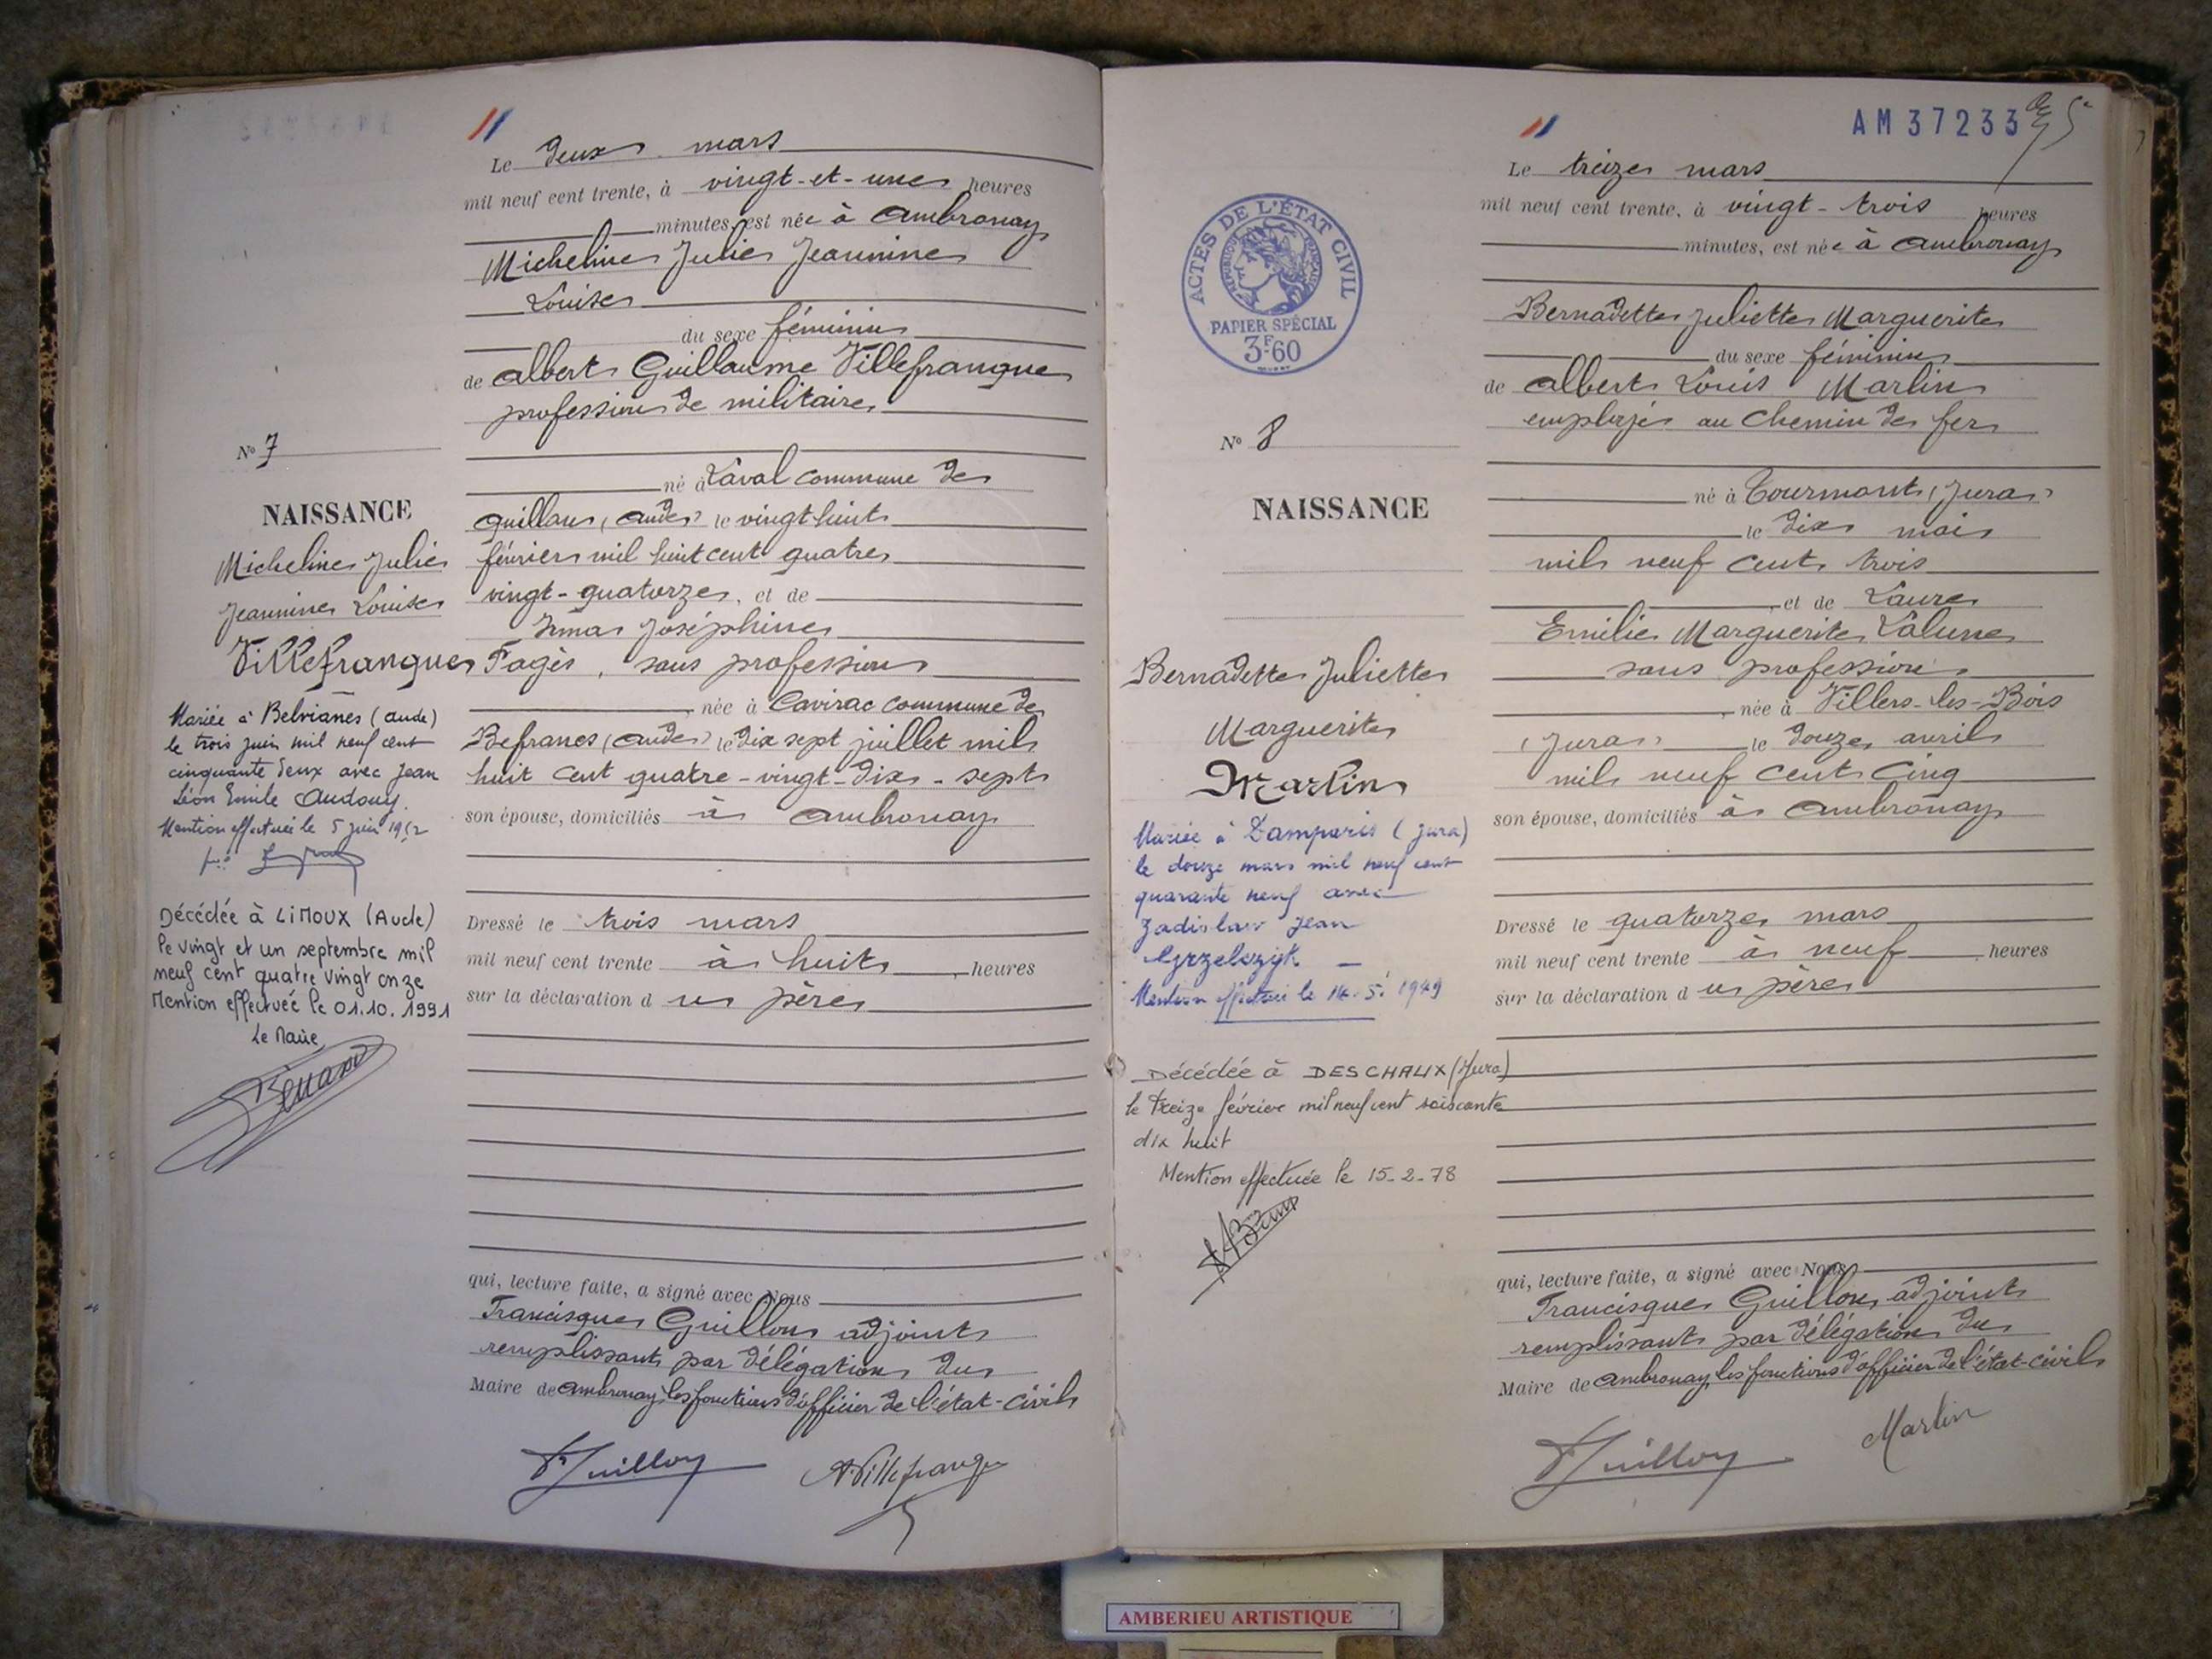 Le deux mars
mil neuf cent trente, à vingt-et-une heures
minutes, est née à Ambronay
Micheline Julie Jeannine
Louise
du sexe féminin
de Albert Guillaume Villefranque
profession de militaire
né à Laval commune de
Quillan (Aude) le vingt huit
février mil huit cent quatre
vingt-quatorze, et de
Irma Joséphine
Fagès, sans profession
née à Cavirac commune de
Befranes (Aude) le dix sept juillet mil
huit cent quatre-vingt-dix-sept
son épouse, domiciliés à Ambronay
Dressé le trois mars
mil neuf cent trente à huit heures
sur la déclaration du père
qui, lecture faite, a signé avec Nous
Francisque Guilloy adjoint
remplissant par délégation du
Maire de Ambronay, les fonctions d'officier de l'état-civil
F Guilloy
A. Villefranque
N° 7
NAISSANCE
Micheline Julie
Jeannine Louise
Villefranque
Mariée à Belvianes (Aude)
le trois juin mil neuf cent
cinquante deux avec Jean
Léon Emile Audouy.
Mention effectuée le 5 juin 1952
Décédée à LIMOUX (Aude)
le vingt et un septembre mil
neuf cent quatre vingt onze
Mention effectuée le 01.10.1991
Le Maire
AM 37233
Le treize mars
mil neuf cent trente, à vingt-trois heures
minutes, est née à Ambronay
Bernadette Juliette Marguerite
du sexe féminin
de Albert Louis Martin
employé au Chemin de fer
né à Tourmont (Jura)
le dix mai
mil neuf cent trois
, et de Laure
Emilie Marguerite Lalune
sans profession
, née à Villers-les-Bois
(Jura) le douze avril
mil neuf cent cinq
son épouse, domiciliés à Ambronay
Dressé le quatorze mars
mil neuf cent trente à neuf heures
sur la déclaration du père
qui, lecture faite, a signé avec Nous
Francisque Guilloy, adjoint
remplissant par délégation du
Maire de Ambronay, les fonctions d'officier de l'état-civil
F Guilloy
Martin
ACTES DE L'ÉTAT CIVIL
RÉPUBLIQUE FRANÇAISE
PAPIER SPÉCIAL
3F.60
N° 8
NAISSANCE
Bernadette Juliette
Marguerite
Martin
Mariée à Damparis (Jura)
le douze mars mil neuf cent
quarante neuf avec
Jean
Mention effectuée le 14.5.1949
Décédée à DESCHAUX (Jura)
le treize février mil neuf cent soixante
dix huit
Mention effectuée le 15-2-78
AMBERIEU ARTISTIQUE